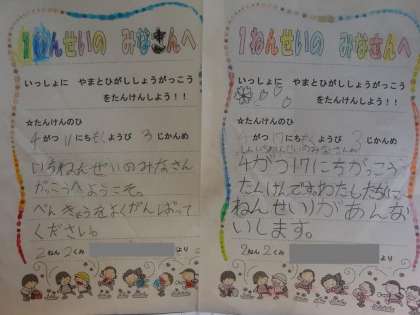 1ねんせいの みなさんへ
いっしょに やまとひがししょうがっこう
をたんけんしよう！！
☆たんけんのひ
4がつ 17にち もくようび 3じかんめ
いちねんせいのみなさん
がっこうへようこそ。
べんきょうをよくがんばって
ください。
2ねん 2くみ より
1ねんせいの みなさんへ
いっしょに やまとひがししょうがっこう
をたんけんしよう！！
☆たんけんのひ
4がつ 17にち ようび 3じかんめ
いちねんせいのみなさん
4がつ17にちがっこう
たんけんです。わたしたち(2
ねんせい)があんない
いします。
2ねん 2くみ より